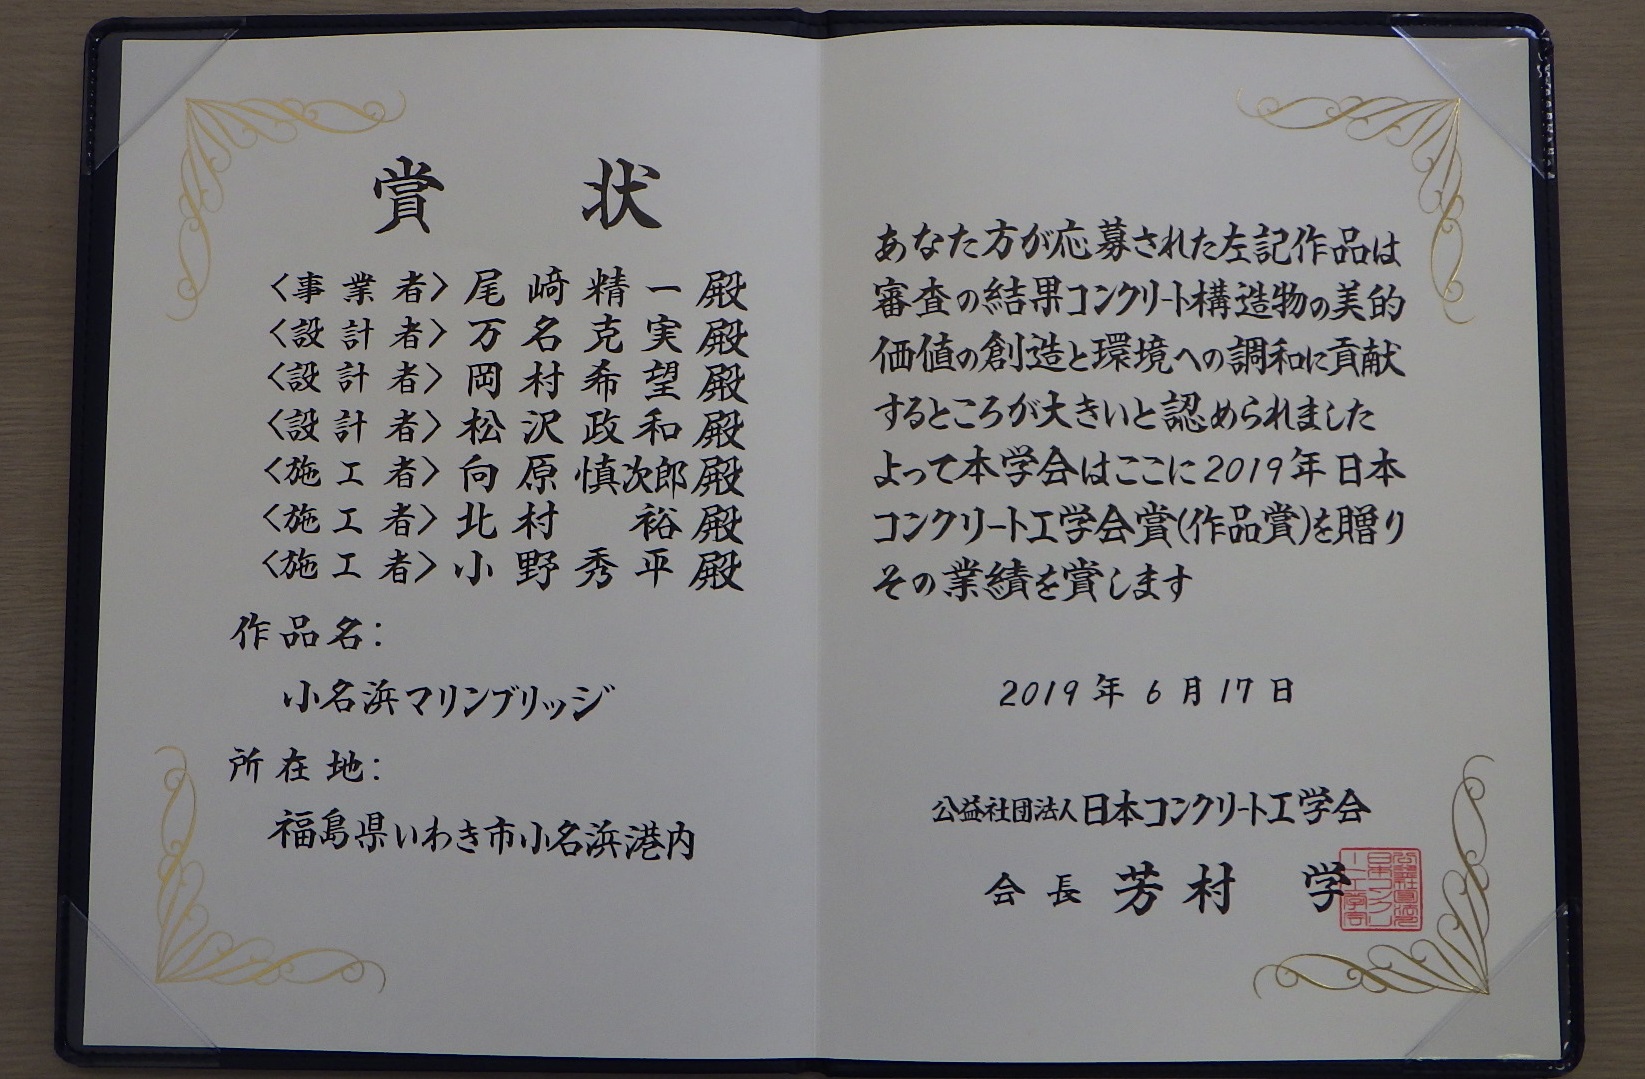 賞状
〈事業者〉尾﨑精一殿
〈設計者〉万名克実殿
〈設計者〉岡村希望殿
〈設計者〉松沢政和殿
〈施工者〉向原慎次郎殿
〈施工者〉北村　裕殿
〈施工者〉小野秀平殿
作品名：
小名浜マリンブリッジ
所在地：
福島県いわき市小名浜港内
あなた方が応募された左記作品は
審査の結果コンクリート構造物の美的
価値の創造と環境への調和に貢献
するところが大きいと認められました
よって本学会はここに2019年日本
コンクリート工学会賞(作品賞)を贈り
その業績を賞します
2019年6月17日
公益社団法人日本コンクリート工学会
会長　芳村　学